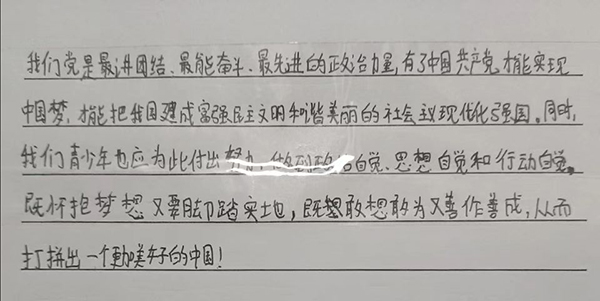 我们党是最讲团结、最能奋斗、最先进的政治力量,有了中国共产党,才能实现
中国梦,才能把我国建成富强民主文明和谐美丽的社会主义现代化强国。同时,
我们青少年也应为此付出努力,做到政治自觉、思想自觉和行动自觉。
既怀抱梦想又要脚踏实地,既想敢想敢为又善作善成,从而
打拼出一个更美好的中国!